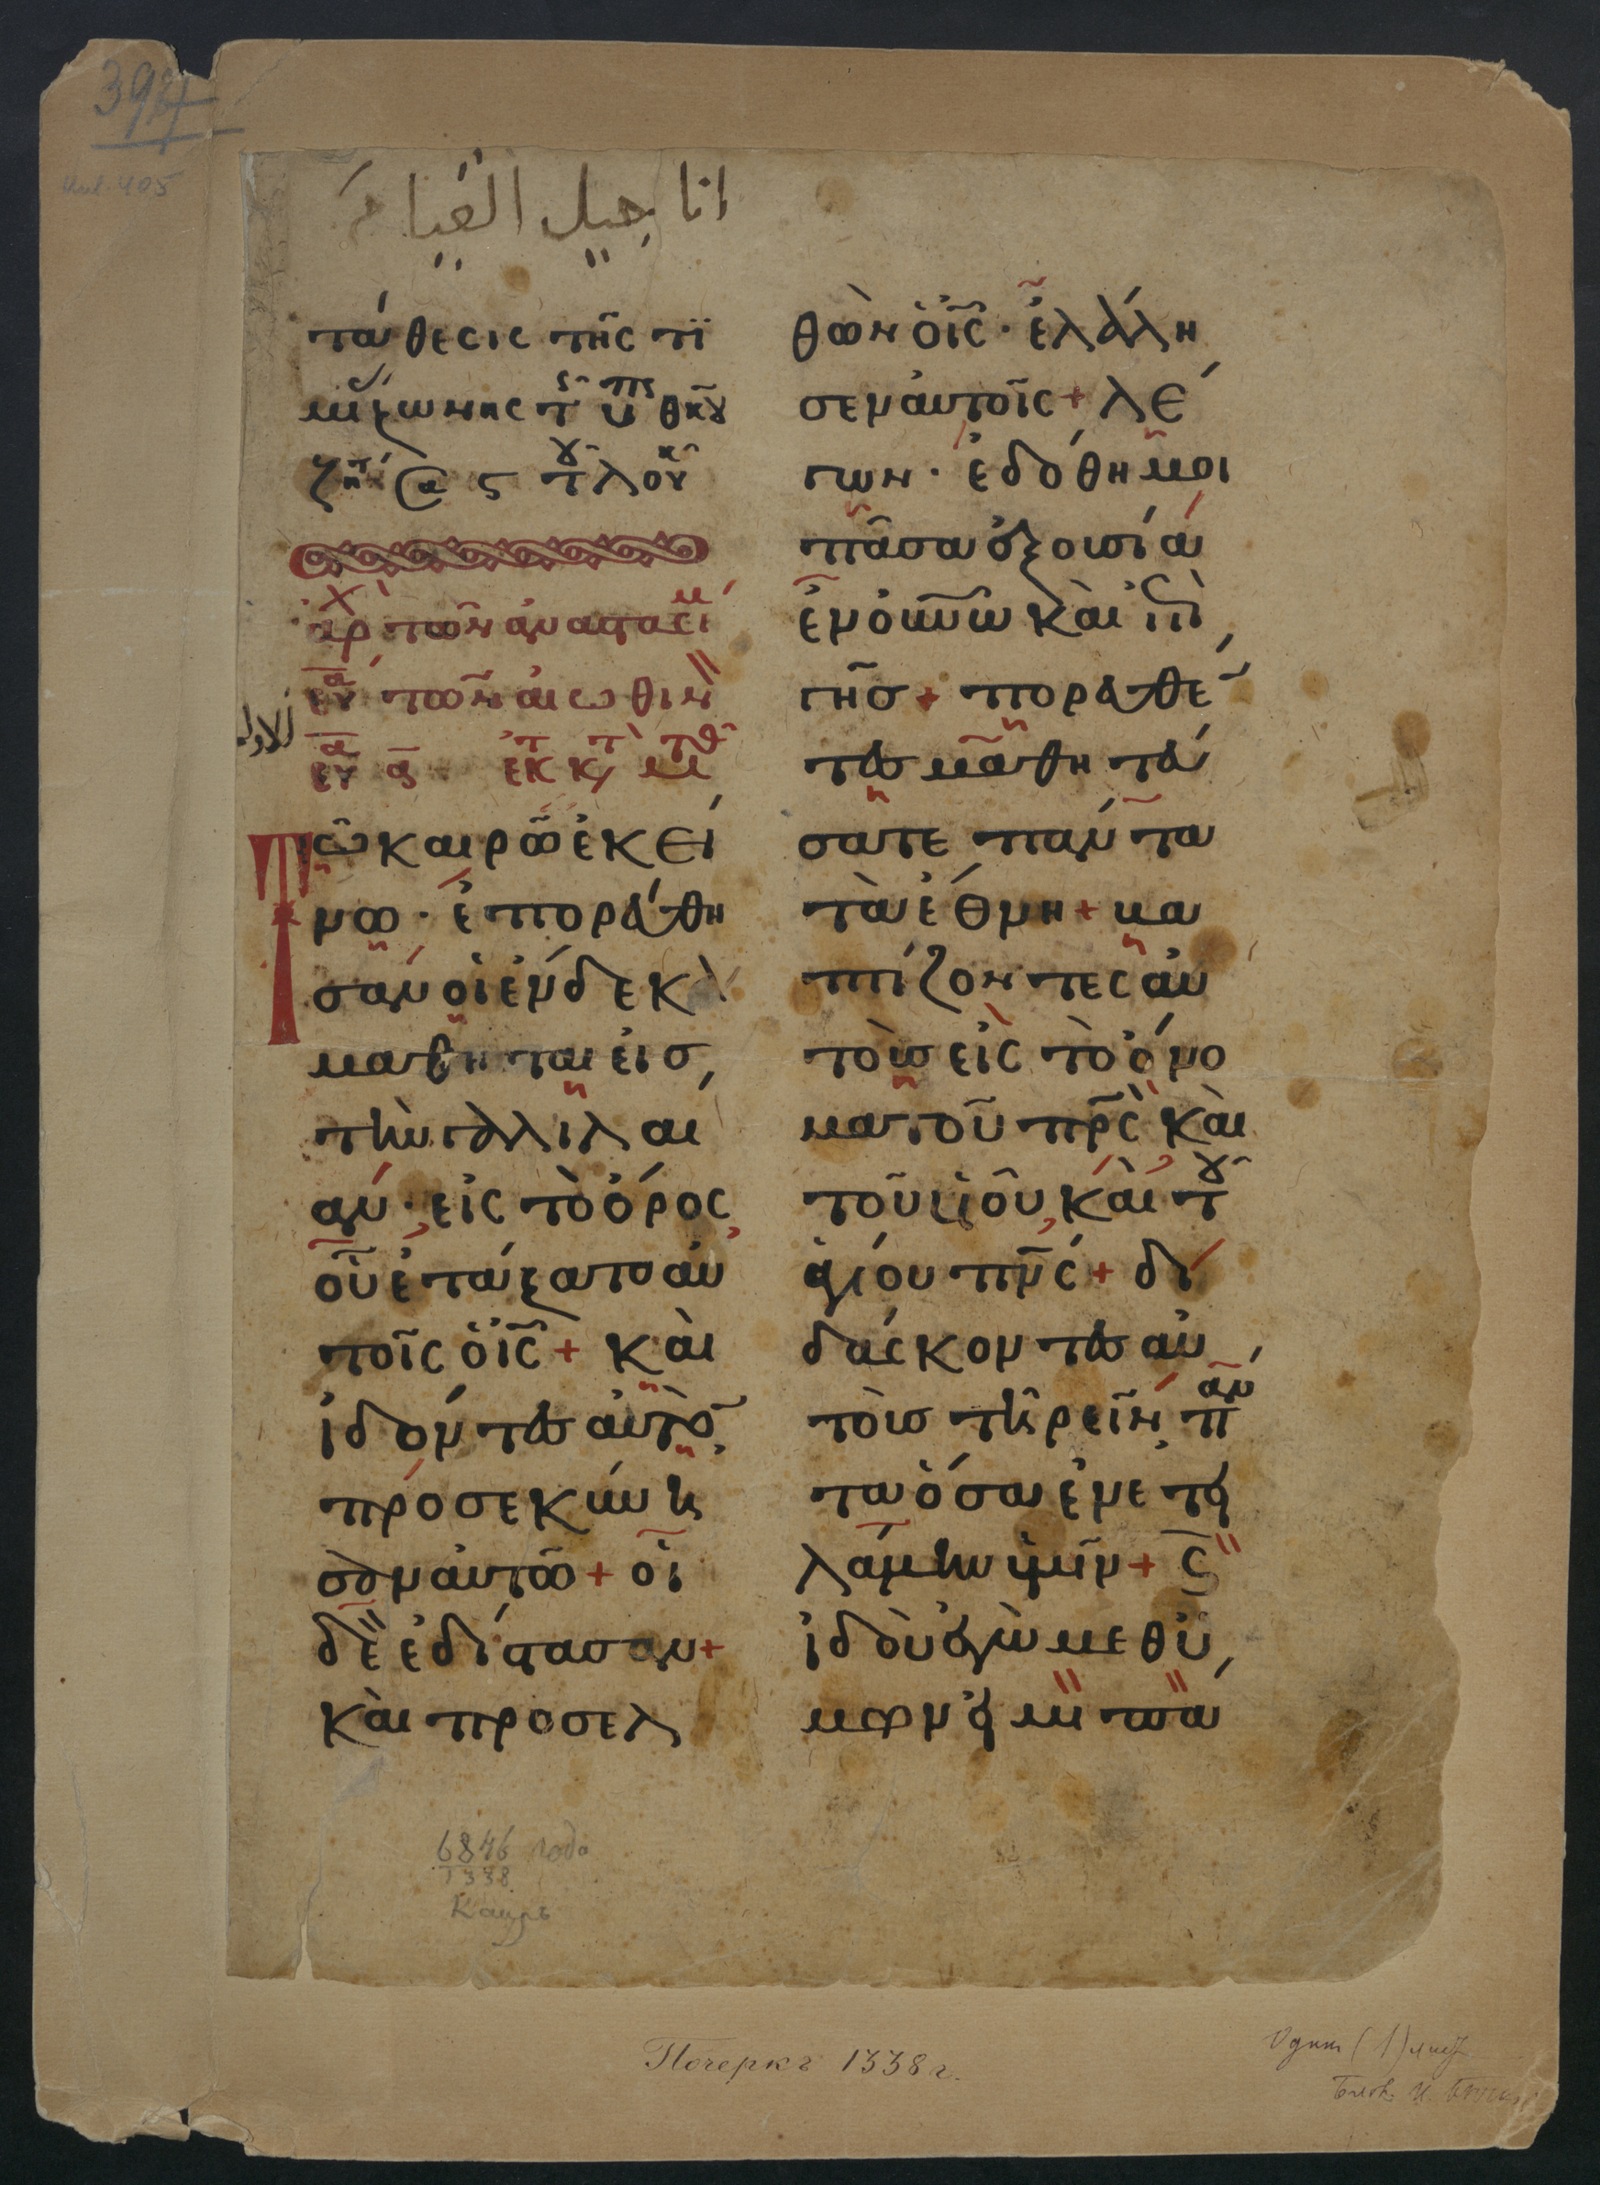 394
اناجيل القيامة
τάθεσις τῆς τϊ
μί(ας) ζώνης τ(ῆς) ὑπ(ε)ρ(αγίας) θ(εοτό)κου
ζήτ(ει) τοῦ λουκ
ἀρχ(ὴ) τῶν ἀναστασίμ
εὐα τῶν αἰωθιν
الاولى
εὐα α ἐκ τ κτ ματθ
Τῶ καιρῶ ἐκεί
νω · ἐπορεύθη
σαν οἱ ἕνδεκα
μαθηται εἰσ
τὴν γαλιλαι
αν · εἰς τὸ ὄρος
οὗ ἐτάξατο αὐ
τοῖς ὁ ἰς + καὶ
ἰδόντεσ αὐτὸ
προσεκύνη
σαν αὐτῶ + οἱ
δὲ ἐδίστασαν +
καὶ προσελ
θὼν ὁ ἰς · ἐλάλη
σεν αὐτοῖς + λέ
γων · ἐδόθη μοι
πᾶσα ἐξουσία
ἐν οὐνῶ καὶ ἐπὶ
γῆσ + πορευθέ
τεσ μαθητεύ
σατε πάντα
τὰ ἔθνη + βα
πτίζοντες αὐ
τοὺσ εἰς τὸ ὄνο
μα τοῦ πρς καὶ
τοῦ υἱοῦ, καὶ τοῦ
ἁγίου πνς + δι
δάσκοντεσ αὐ
τοὺσ τηρεῖν παν
τα ὅσα ἐνετει
λάμην ὑμῖν + ς
ἰδοὺ ἐγὼ μεθ ὑ
μῶν εἰμι πά
6846 года
1338
Каиръ
Почеркъ 1338 г.
Один (1) лист